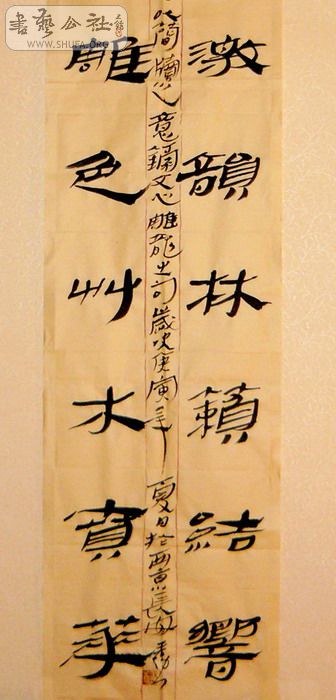 書藝公社
WWW.SHUFA.ORG
激韻林籟結響
以簡牘之意文心雕龍之句歲次庚寅年夏日於西京長安
雕色艸木賁華